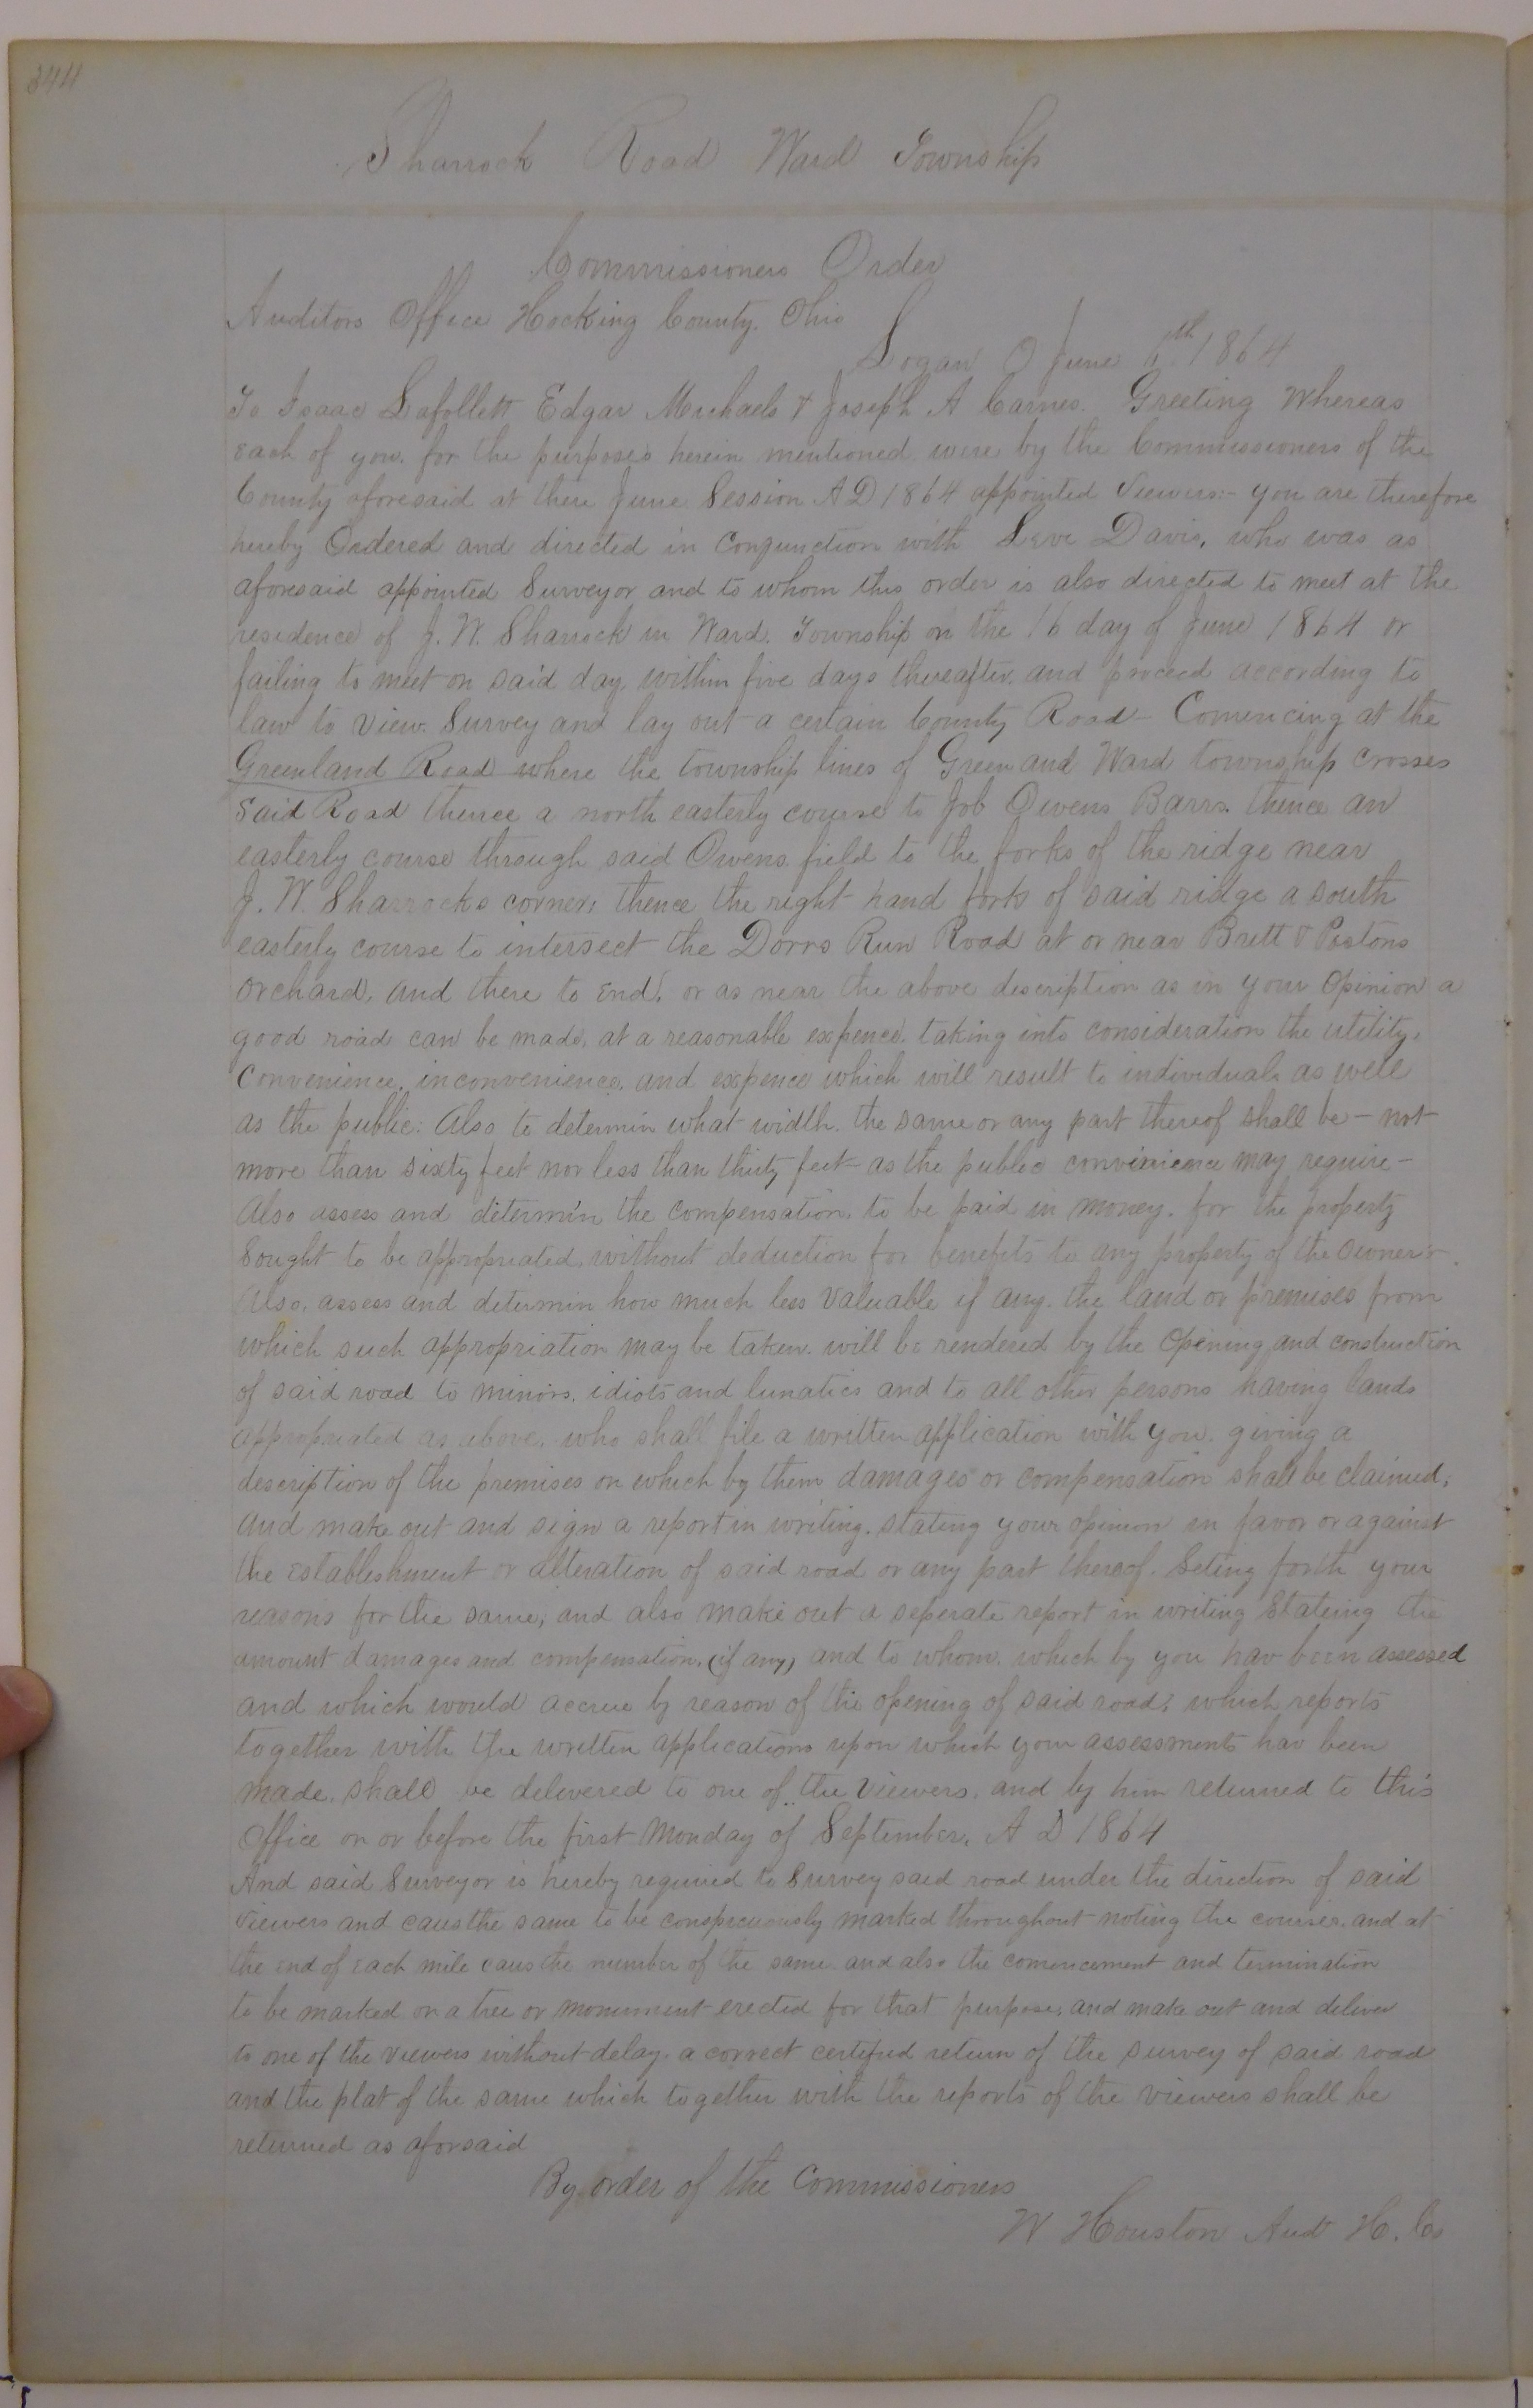 344
Sharrock Road Ward Township
Commissioners Order
Auditors Office Hocking County. Ohio
Logan O June 6th 1864
To Isaac Lafollett Edgar Michaels & Joseph A Carnes. Greeting Whereas
each of you. for the purposes herein mentioned were by the Commissioners of the
County aforesaid at there June Session A D 1864 appointed Viewers:- you are therefore
hereby Ordered and directed in Conjunction with Levi Davis, who was as
aforesaid appointed Surveyor and to whom this order is also directed to meet at the
residence of J. W. Sharrock in Ward. Township on the 16 day of June 1864 or
failing to meet on said day within five days thereafter. and proceed according to
law to view. Survey and lay out a certain County Road - Comencing at the
Greenland Road where the township lines of Green and Ward township crosses
Said Road thence a north easterly course to Job Owens Barrs. thence an
easterly course through said Owens field to the forks of the ridge near
J. W. Sharrocks corner; thence the right hand fork of said ridge a south
easterly course to intersect the Dorrs Run Road at or near Brett & Pastons
Orchard, and there to End, or as near the above description as in your Opinion a
good road can be made, at a reasonable expence. taking into consideration the utility,
Convenience, inconvenience, and expence which will result to individuals as well
as the public: Also to determin what width. the same or any part thereof shall be - not
more than sixty feet nor less than thirty feet - as the public convenience may require -
Also assess and determin the compensation. to be paid in money. for the property
Sought to be appropriated, without deduction for benefits to any property of the Owners.
Also, assess and determin how much less Valuable if any. the land or premises from
which such appropriation may be taken. will be rendered by the Opening and construction
of said road to minors. idiots and lunatics and to all other persons having lands
appropriated as above, who shall file a written application with you. giving a
description of the premises on which by them damages or compensation shall be claimed;
and make out and sign a report in writing. stating your opinion in favor or against
the establishment or alteration of said road or any part thereof. Seting forth your
reasons for the same; and also make out a seperate report in writing Stateing the
amount damages and compensation, (if any) and to whom. which by you hav been assessed
and which would accrue by reason of the opening of said road; which reports
together with the written applications upon which your assessments hav been
made. shall be delivered to one of the Viewers, and by him returned to this
Office on or before the first Monday of September, A D 1864
And said Surveyor is hereby required to Survey said road under the direction of said
Viewers and caus the same to be conspicuously marked throughout noting the courses. and at
the end of each mile caus the number of the same and also the comencement and termination
to be marked on a tree or monument erected for that purpose, and make out and deliver
to one of the viewers without delay. a correct certified return of the survey of said road
and the plat of the same which together with the reports of the viewers shall be
returned as aforsaid
By order of the Commissioners
W Houston Aud H. Co